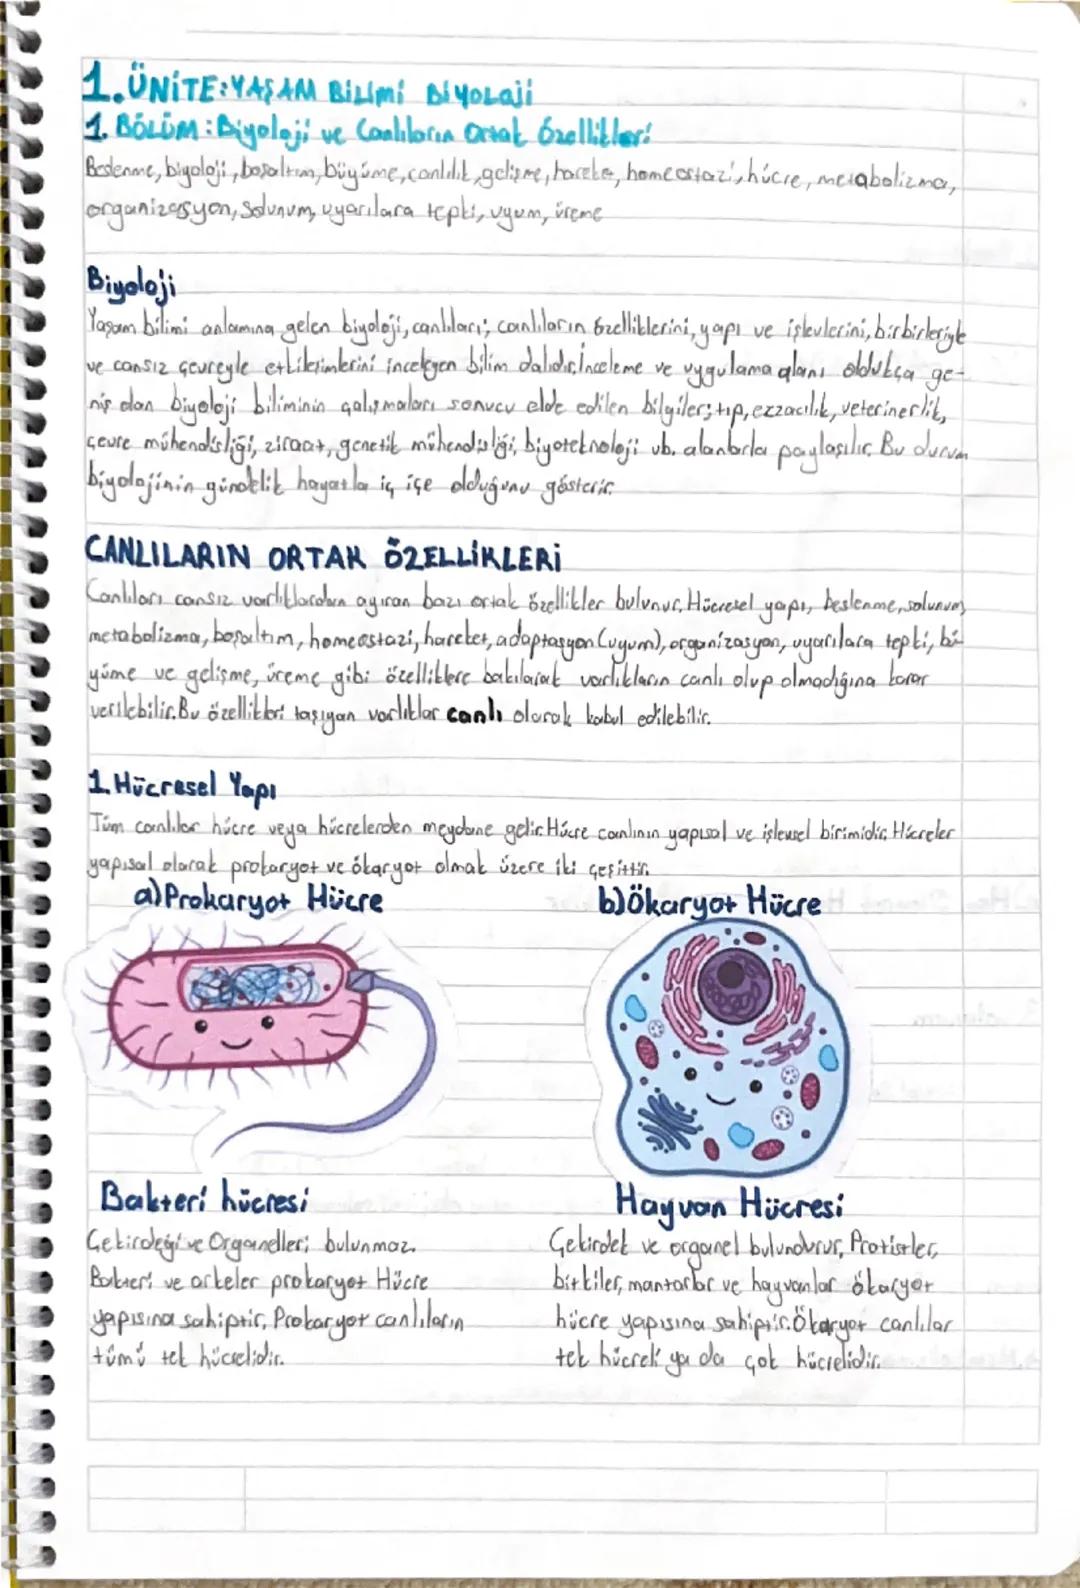 1.ÜNİTE:YAŞAM BİLİMİ BİYOLOJİ
1. BÖLÜM:Biyoloji ve Canlıların Ortak Özellikleri
Beslenme, biyoloji, boşaltım, büyüme, canlılık, gelişme, hareket, homeostazi, hücre, metabolizma,
organizasyon, Solunum, uyarılara tepki, uyum, üreme
Biyoloji
Yaşam bilimi anlamına gelen biyoloji, canlıları; canlıların özelliklerini, yapı ve işlevlerini, birbirleriyle
ve cansız çevreyle etkileşimlerini inceleyen bilim dalıdır. İnceleme ve uygulama alanı oldukça ge-
niş olan biyoloji biliminin çalışmaları sonucu elde edilen bilgiler; tıp, eczacılık, veterinerlik,
çevre mühendisliği, ziraat, genetik mühendisliği, biyoteknoloji vb. alanlarla paylaşılır. Bu durum
biyolojinin gündelik hayatla iç içe olduğunu gösterir.
CANLILARIN ORTAK ÖZELLİKLERİ
Canlıları cansız varlıklardan ayıran bazı ortak özellikler bulunur. Hücresel yapı, beslenme, solunum,
metabolizma, boşaltım, homeostazi, hareket, adaptasyon (uyum), organizasyon, uyarılara tepki, bü-
yüme ve gelişme, üreme gibi özelliklere bakılarak varlıkların canlı olup olmadığına karar
verilebilir. Bu özellikleri taşıyan varlıklar canlı olarak kabul edilebilir.
1. Hücresel Yapı
Tüm canlılar hücre veya hücrelerden meydana gelir. Hücre canlının yapısal ve işlevsel birimidir. Hücreler
yapısal olarak prokaryot ve ökaryot olmak üzere iki çeşittir.
a) Prokaryot Hücre
b) Ökaryot Hücre
Bakteri hücresi
Çekirdeği ve Organelleri bulunmaz.
Bakteri ve arkeler prokaryot Hücre
yapısına sahiptir. Prokaryot canlıların
tümü tek hücrelidir.
Hayvan Hücresi
Çekirdek ve organel bulundurur. Protistler,
bitkiler, mantarlar ve hayvanlar ökaryot
hücre yapısına sahiptir. Ökaryot canlılar
tek hücreli ya da çok hücrelidir.